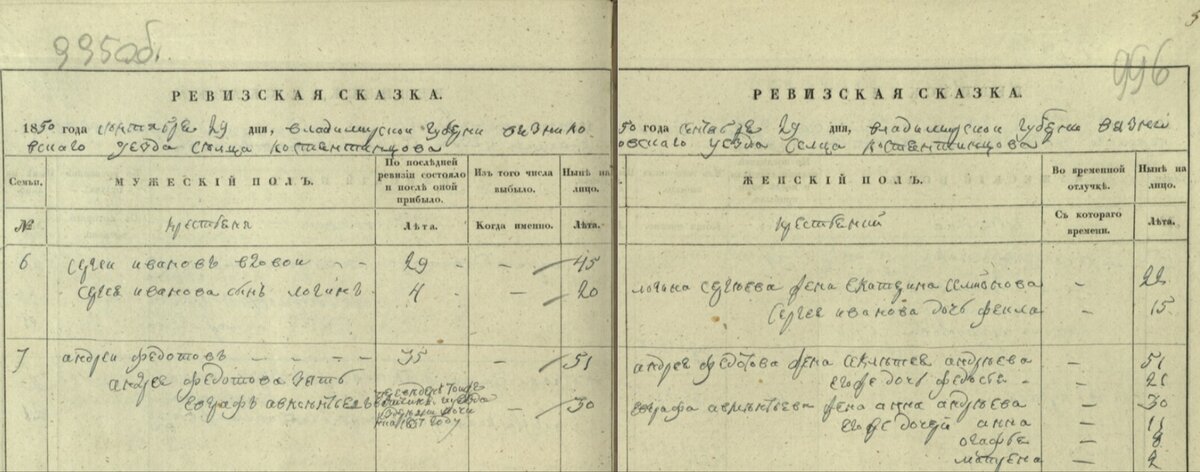 995об.
РЕВИЗСКАЯ СКАЗКА.
1850 года сентября 29 дня, владимирской губерни вязнико
вского уезда сельца костентинцова
Семьи.
МУЖЕСКІЙ ПОЛЪ.
По послѣдней ревизіи состояло и послѣ оной прибыло.
Изъ того числа выбыло.
Нынѣ на лицо.
№
крестьяня
Лѣта.
Когда именно.
Лѣта.
6 сергеи ивановъ вдовои - - 29 - - 45
сергея иванова сынъ логинъ 4 - 20
7 андреи федотовъ - - - - 35 - 51
андрея федотова зять
евграфъ - 30
996
РЕВИЗСКАЯ СКАЗКА.
50 года сентября 29 дня, владимирской губерни вязни
ковского уезда сельца костентинцова
ЖЕНСКІЙ ПОЛЪ.
Во временной отлучкѣ.
Нынѣ на лицо.
Съ котораго времени.
Лѣта.
логина сергеева жена екатерина семионова - 22
сергея иванова дочь фекла - 15
андрея федотова жена андреева - 51
егоже дочь федосья - 21
евграфа жена анна андреева - 30
егоже дочери анна - 11
огафья - 8
матрена - 2